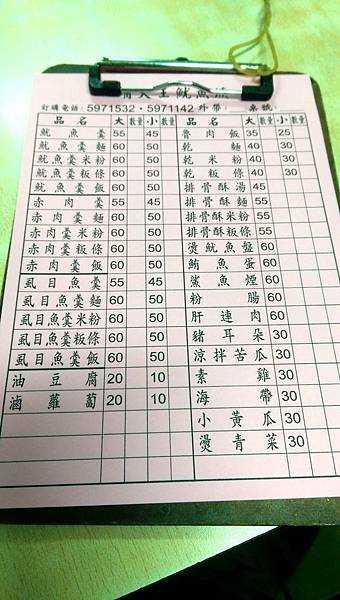 大王魷魚
訂購電話：5971532・5971142 外帶： 桌號：
品名 大 數量 小 數量 品名 大 數量 小 數量
魷魚羹 55 45 魯肉飯 35 25
魷魚羹麵 60 50 乾麵 40 30
魷魚羹米粉 60 50 乾米粉 40 30
魷魚羹粄條 60 50 乾粄條 40 30
魷魚羹飯 60 50 排骨酥湯 45
赤肉羹 55 45 排骨酥麵 55
赤肉羹麵 60 50 排骨酥米粉 55
赤肉羹米粉 60 50 排骨酥粄條 55
赤肉羹粄條 60 50 燙魷魚盤 60
赤肉羹飯 60 50 鮪魚蛋 60
虱目魚羹 55 45 鯊魚煙 60
虱目魚羹麵 60 50 粉腸 60
虱目魚羹米粉 60 50 肝連肉 60
虱目魚羹粄條 60 50 豬耳朵 30
虱目魚羹飯 60 50 涼拌苦瓜 30
油豆腐 20 10 素雞 30
滷蘿蔔 20 10 海帶 30
小黃瓜 30
燙青菜 30